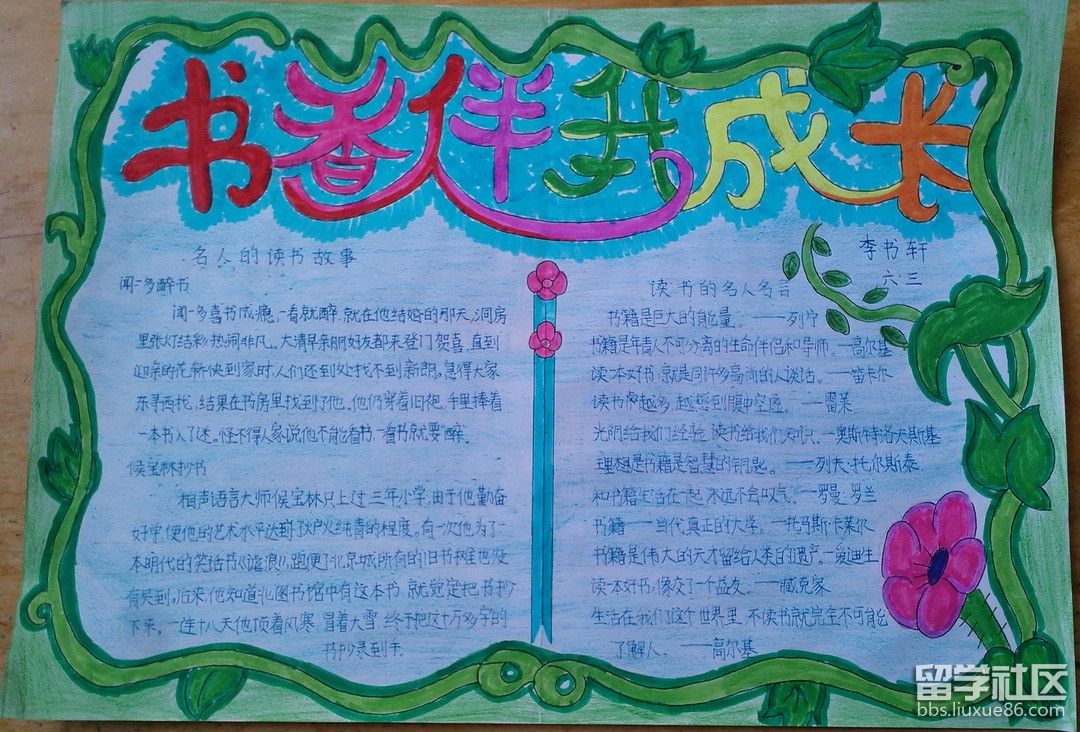 书香伴我成长
李书轩
六·三
名人的读书故事
闻一多醉书
闻一多喜书成瘾,一看就醉,就在他结婚的那天,洞房
里张灯结彩,热闹非凡。大清早亲朋好友都来登门贺喜,直到
迎亲的花轿快到家时,人们还到处找不到新郎。急得大家
东寻西找,结果在书房里找到了他。他仍穿着旧袍,手里捧着
一本书入了迷。怪不得人家说他不能看书,一看书就要醉。
侯宝林抄书
相声语言大师侯宝林只上过三年小学,由于他勤奋
好学,使他的艺术水平达到了炉火纯青的程度。有一次,他为了
本明代的笑话书《谑浪》,跑遍了北京城所有的旧书摊也没
有买到。后来,他知道北图书馆中有这本书,就决定把书抄
下来,一连十八天,他顶着风寒,冒着大雪,终于把这十万多字的
书抄录到手。
读书的名人名言
书籍是巨大的能量。——列宁
书籍是年青人不可分离的生命伴侣和导师。—高尔基
读一本好书,就是同许多高尚的人谈话。—笛卡尔
读书越多,越感到腹中空虚。—雪莱
光阴给我们经验,读书给我们知识。—奥斯特洛夫斯基
理想是书籍是智慧的钥匙。——列夫·托尔斯泰
和书籍生活在一起,永远不会叹气。—罗曼·罗兰
书籍——当代真正的大学。—托马斯·卡莱尔
书籍是伟大的天才留给人类的遗产。—爱迪生
读一本好书,像交了一个益友。——臧克家
生活在我们这个世界里,不读书就完全不可能
了解人。——高尔基
留学社区
bbs.liuxue86.com